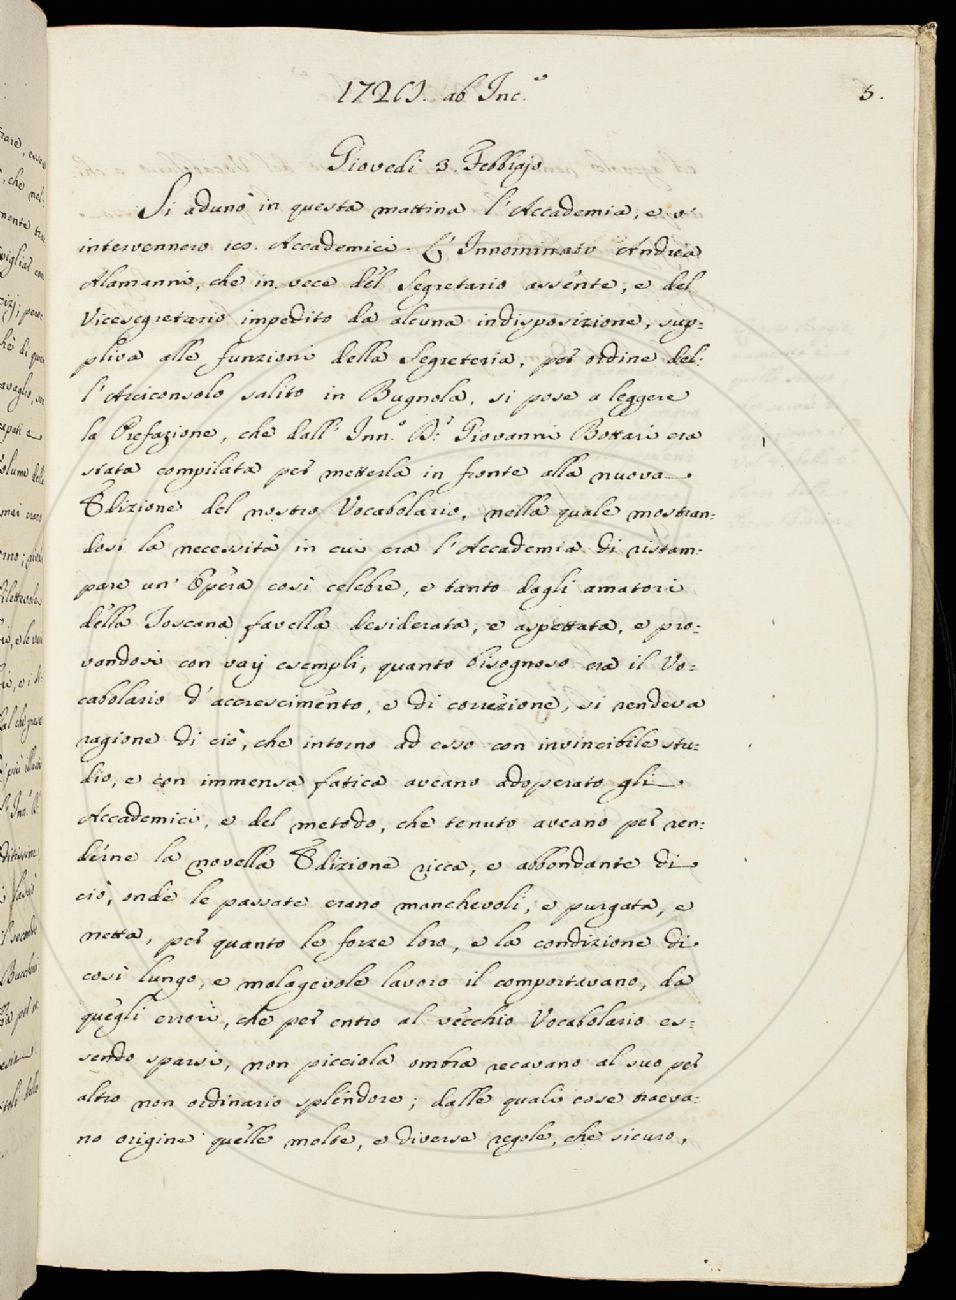 172(). ab Inc.o
5.
Giovedì 3. Febbrajo
Si adunò in questa mattina l'Accademia, e v'
intervennero 10. Accademici. L'Innominato Andrea
Alamanni, che in vece del Segretario assente, e del
Vicesegretario impedito da alcuna indisposizione, sup-
pliva alle funzioni della Segreteria, per ordine del-
l'Arciconsolo salito in Bugnola, si pose a leggere
la Prefazione, che dall'Inn.o D.r Giovanni Bottari era
stata compilata per metterla in fronte alla nuova
Edizione del nostro Vocabolario, nella quale mostran-
dosi la necessità in cui era l'Accademia di ristam-
pare un'Opera così celebre, e tanto dagli amatori
della Toscana favella desiderata, e aspettata, e pro-
vandosi con varj esempli, quanto bisognoso era il Vo-
cabolario d'accrescimento, e di correzione, si rendeva
ragione di ciò, che intorno ad esso con invincibile stu-
dio, e con immensa fatica aveano adoperato gli
Accademici, e del metodo, che tenuto aveano per ren-
derne la novella Edizione ricca, e abbondante di
ciò, onde le passate erano manchevoli, e purgata, e
netta, per quanto le forze loro, e la condizione di
così lungo, e malagevole lavoro il comportavano, da
quegli errori, che per entro al vecchio Vocabolario es-
sendo sparsi, non picciola ombra recavano al suo per
altro non ordinario splendore; dalle quali cose traeva-
no origine quelle molte, e diverse regole, che sicuro,